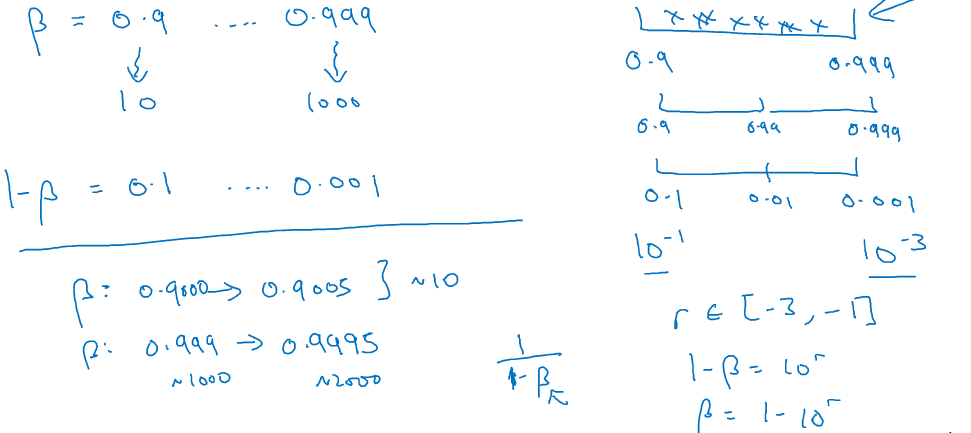 β = 0.9 .... 0.999
10 1000
1-β = 0.1 .... 0.001
β: 0.9000 → 0.9005 } ~10
β: 0.999 → 0.9995
~1000 ~2000
1/(1-β)
0.9 0.999
0.9 0.99 0.999
0.1 0.01 0.001
10⁻¹ 10⁻³
r ∈ [-3, -1]
1-β = 10ʳ
β = 1-10ʳ